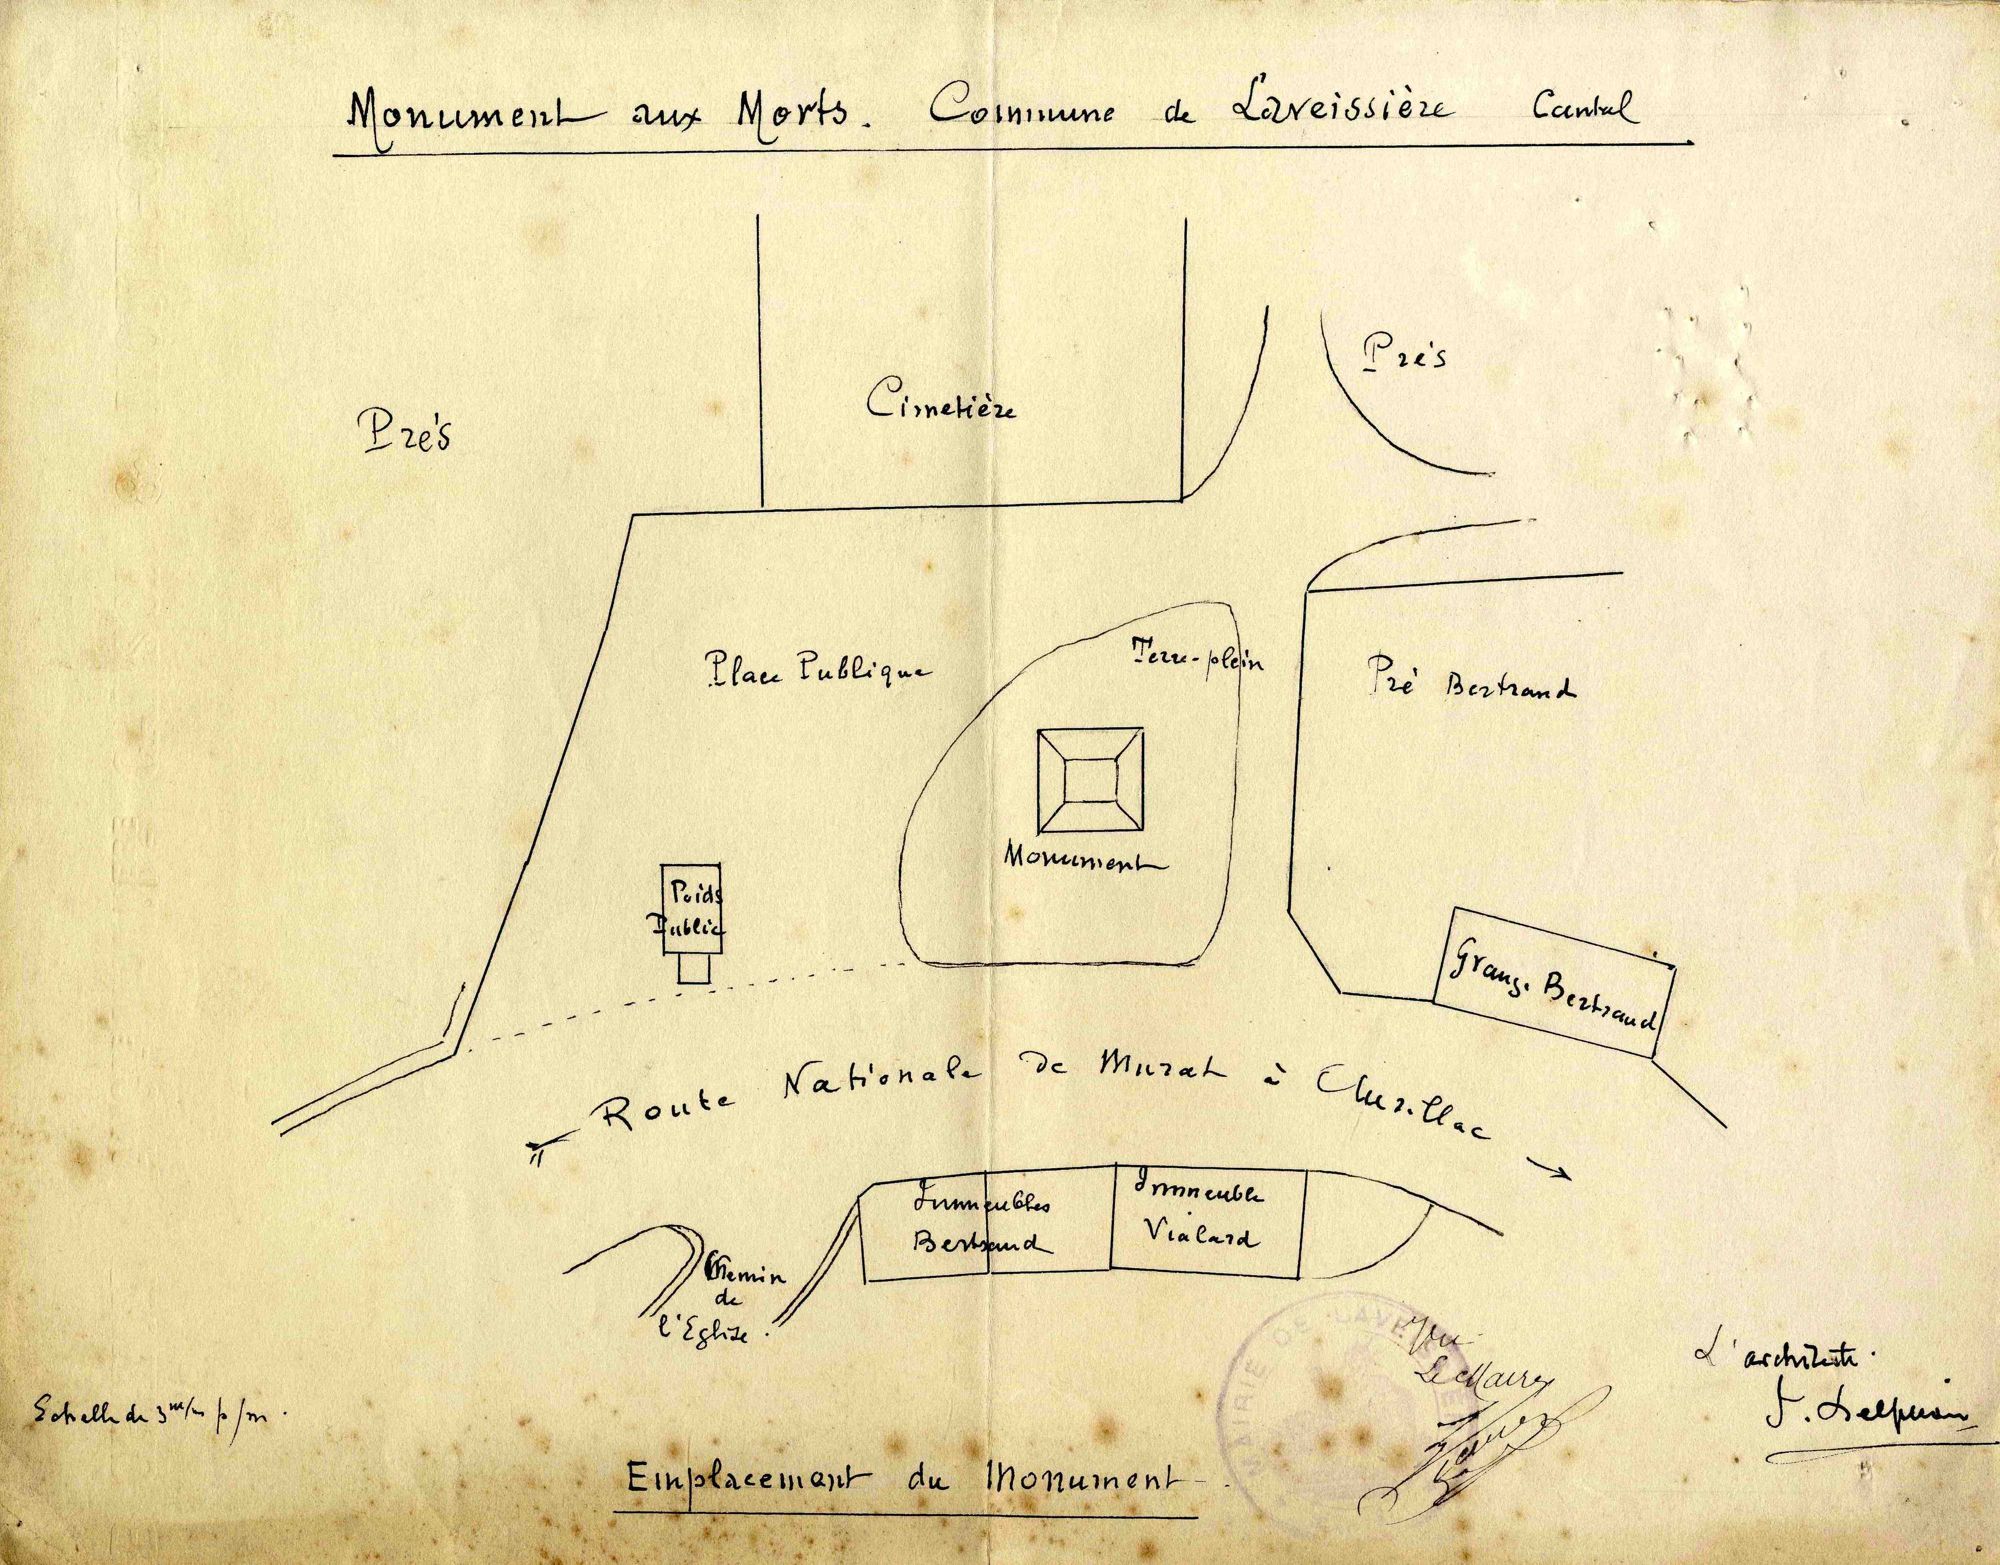 Monument aux Morts. Commune de Laveissière Cantal
Prés
Cimetière
Prés
Place Publique
Terre-plein
Pré Bertrand
Monument
Poids
Public
Grange Bertrand
Route Nationale de Murat à Aurillac
Immeubles
Bertrand
Immeuble
Vialard
Chemin
de
l'Eglise.
MAIRIE DE LAVEISSIÈRE
Vu
Le Maire
L'architecte.
Echelle de 3 m/m p/m.
Emplacement du Monument